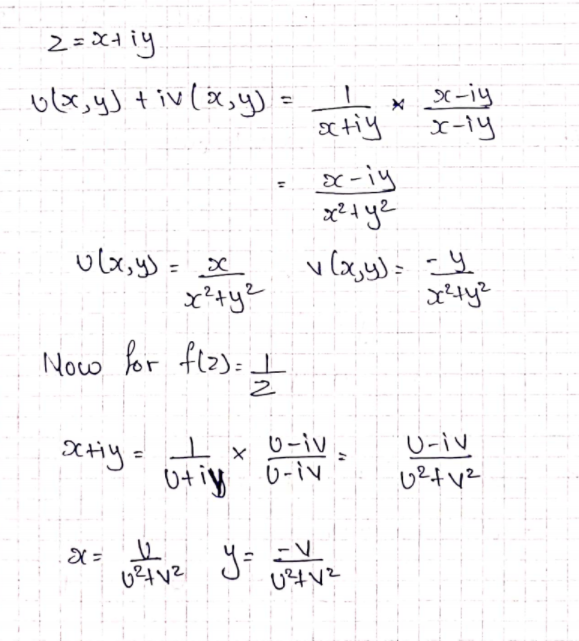 z = x+iy
u(x,y) + iv(x,y) = 1/(x+iy) × (x-iy)/(x-iy)
= (x-iy)/(x²+y²)
u(x,y) = x/(x²+y²) v(x,y) = -y/(x²+y²)
Now for f(z) = 1/z
x+iy = 1/(u+iv) × (u-iv)/(u-iv) = (u-iv)/(u²+v²)
x = u/(u²+v²) y = -v/(u²+v²)